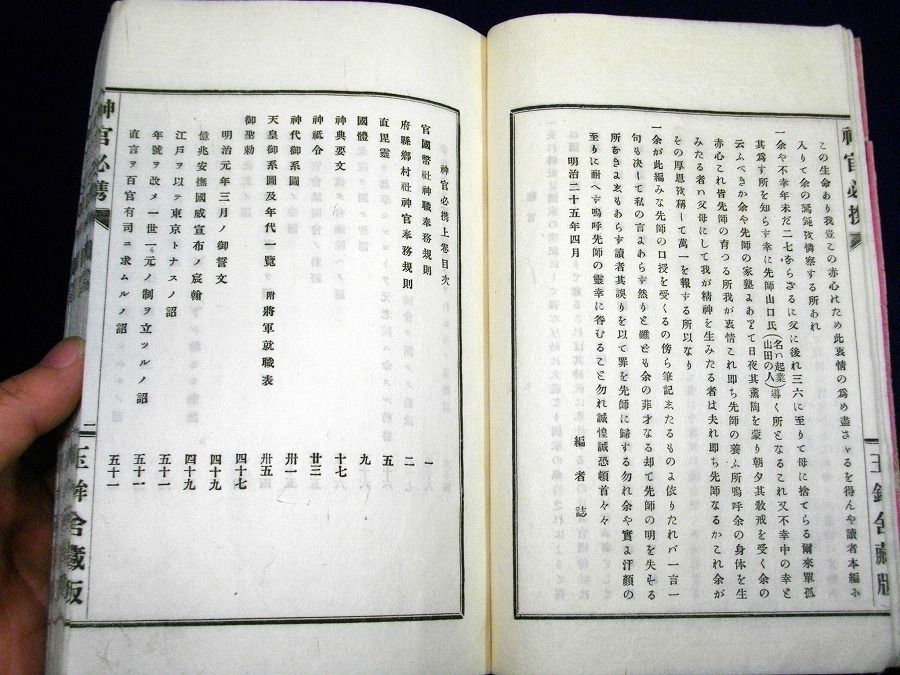 神官必携
この生命あり我豈この赤心れため此衷情の爲め盡さゝるを得んや讀者本編ホ
入りて余の寃純を憐察する所あれ
一余や不幸年未だ二七ならざるに父に後れ三六に至りて母に捨てらる爾來單孤
其爲す所を知らす幸に先師山口氏(名ハ起業山田の人)導く所となるこれ又不幸中の幸と
云ふべきか余や先師の家塾よあること日夜其薫陶を蒙り朝夕其敎戒を受く余の
赤心これ皆先師の育つる所我が衷情これ即ち先師の養ふ所嗚呼余の身体を生
みたる者ハ父母にして我が精神を生みたる者は夫れ即ち先師なるかこれ余が
その厚恩を稱して萬一を報する所以なり
一余が此編みな先師の口授を受くるの傍ら筆記ゑたるものよ依りたれバ一言一
句も决して私の言よあらす然りと雖とも余の菲才なる却て先師の明を失せる
所なきよゑもあらす讀者其誤りを以て罪を先師に歸する勿れ余や實よ汗顔の
至りに耐へす嗚呼先師の靈幸に咎むること勿れ誠惶誠恐頓首々々
明治二十五年四月 編者誌
玉鉾舎藏版
神官必携
神官必携上卷目次
官國幣社神職奉務規則 一
府縣鄕村社神官奉務規則 二
直毘靈 五
國體 九
神典要文 十七
神祗令 廿三
神代御系圖 卅一
天皇御系圖及年代一覽 附將軍就職表 卅五
御聖勅 四十七
明治元年三月ノ御誓文 四十七
億兆安撫國威宣布ノ宸翰 四十九
江戸ヲ以テ東京トナスノ詔 四十九
年號ヲ改メ一世一元ノ制ヲ立ツルノ詔 五十一
直言ヲ百官有司ニ求ムルノ詔 五十一
二
玉鉾舎藏版